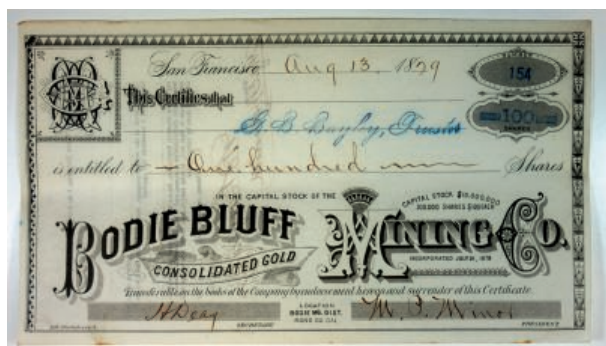 San Francisco Aug 13, 1879
NUMBER
154
This Certifies that
100
SHARES
G. B. Bayley, Trustee
is entitled to One hundred Shares
IN THE CAPITAL STOCK OF THE
CAPITAL STOCK $10,000,000
100,000 SHARES $100 EACH
BODIE BLUFF
CONSOLIDATED GOLD
MINING CO.
Transferable on the books of the Company by endorsement hereon and surrender of this Certificate.
LOCATION
BODIE MG. DIST.
MONO CO. CAL.
SECRETARY
PRESIDENT